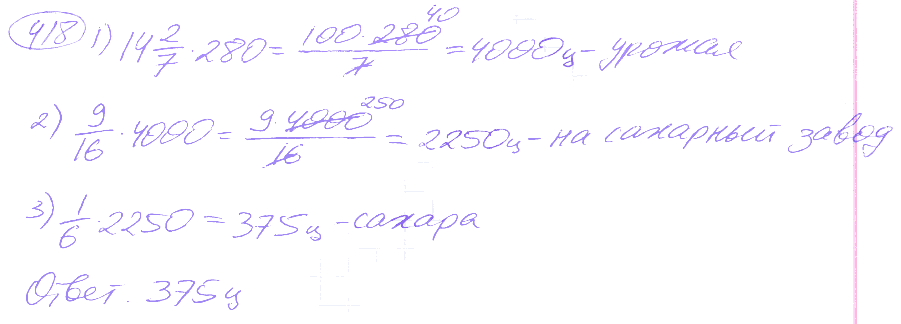 418 1) 14 2/7 · 280 = 100 · 280 40 / 7 = 4000ц - урожая
2) 9/16 · 4000 = 9 · 4000 250 / 16 = 2250ц - на сахарный завод
3) 1/6 · 2250 = 375ц - сахара
Ответ. 375ц